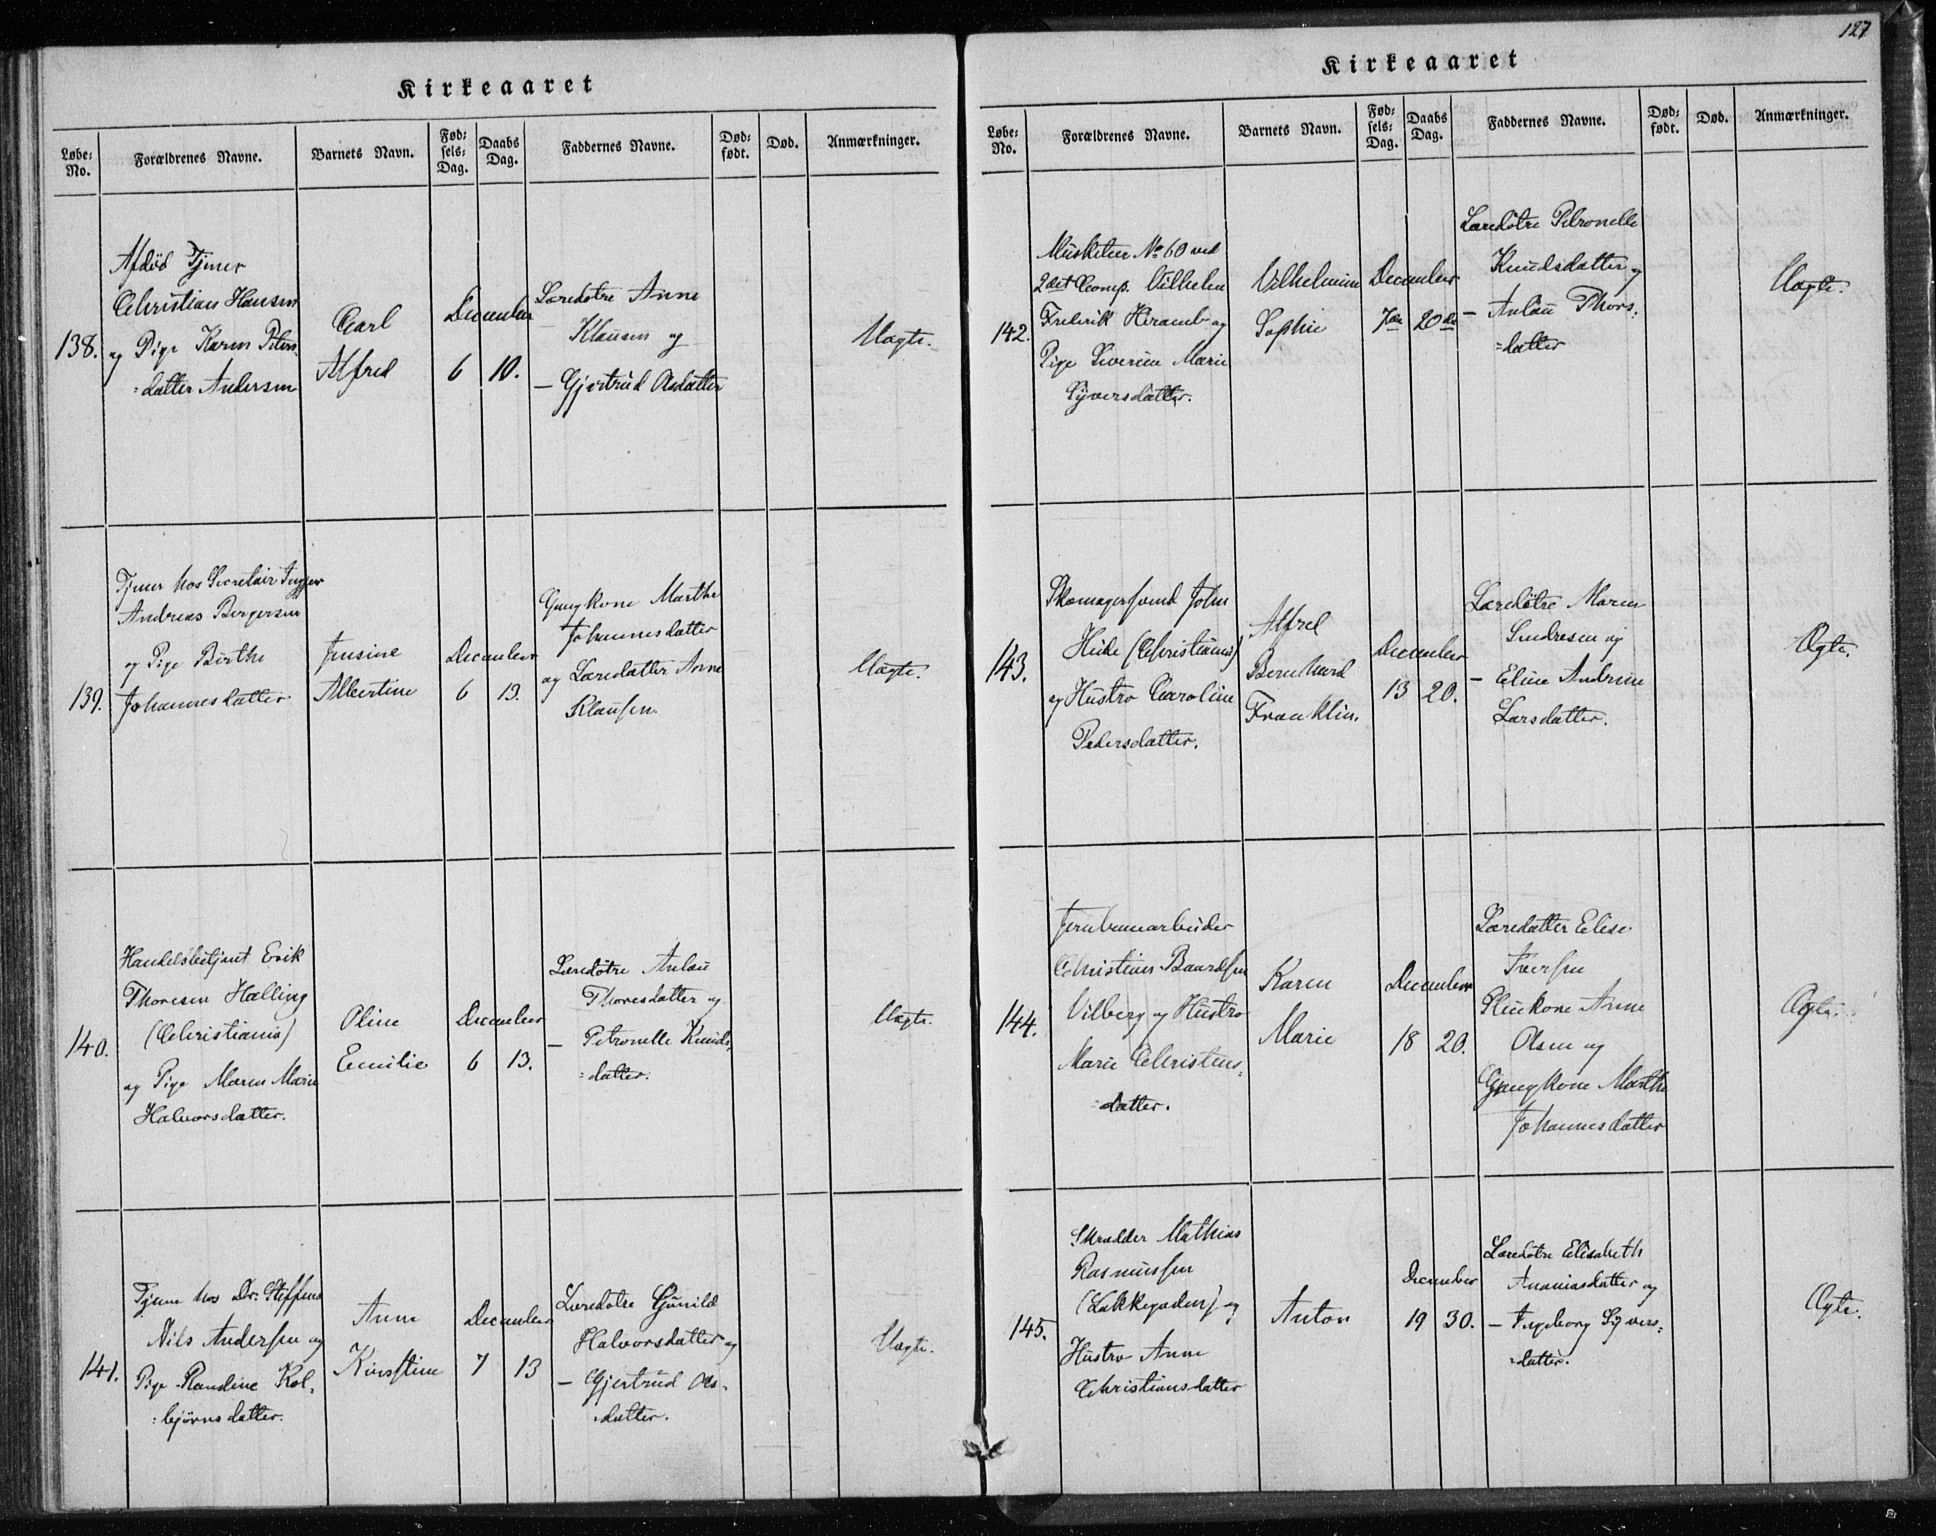 127
Kirkeaaret
Løbe-No.
Forældrenes Navne.
Barnets Navn.
Fød-sels-Dag.
Daabs Dag.
Faddernes Navne.
Død-født.
Død.
Anmærkninger.
138.
Afdød Tjener
Christian Hansen
og Pige Karen Peters
=datter Andersen
Carl
Alfred
December
6 10.
Læredøtre Anne
Klausen og
— Gjertrud Olsdatter
Uægte.
139.
Tjener hos Secretair
Andreas Bergersen
og Pige Birthe
Johannesdatter
Jensine
Albertine
December
6 13.
Gangkone Marthe
Johannesdatter
og Læredatter Anne
Klausen
Uægte.
140.
Handelsbetjent Erik
Thoresen Halling
(Christiania)
og Pige Maren Marie
Halvorsdatter.
Oline
Emilie
December
6 13.
Læredøtre
Thoresdatter og
— Petronelle Knuds-
=datter.
Uægte.
141.
Tjener hos Dr. Steffens
Nils Andersen og
Pige Randine Kol-
=bjørnsdatter.
Anne
Kirstine
December
7 13
Læredøtre Gunild
Halvorsdatter og
— Gjertrud Ols-
=datter.
Uægte.
Kirkeaaret
Løbe-No.
Forældrenes Navne.
Barnets Navn.
Fød-sels-Dag.
Daabs Dag.
Faddernes Navne.
Død-født.
Død.
Anmærkninger.
142.
Musketeer No 60 ved
2det Comp. Vilhelm
Frederik og
Pige Siverine Marie
Syversdatter.
Vilhelmine
Sophie
December
7de 20de
Læredøtre Petronelle
Knudsdatter og
— Thors-
=datter
Uægte.
143.
Skomagersvend John
(Christiania)
og Hustro Caroline
Pedersdatter.
Alfred
Bernhard
Franklin.
December
13 20.
Læredøtre Maren
Sindresen og
— Eline Andrine
Larsdatter.
Ægte.
144.
Jernbanearbeider
Christian Baardsen
Vilberg og Hustro
Marie Christens-
=datter.
Karen
Marie
December
18 20.
Læredatter Elise
Iversen
Pleiekone Anne
Olsen og
Gangkone Marthe
Johannesdatter
Ægte.
145.
Skrædder Mathias
Rasmussen
(Lakkegaden) og
Hustro Anne
Christiansdatter
Anton
December
19 30.
Læredøtre Elisabeth
Ananiasdatter og
— Ingeborg Syvers-
=datter.
Ægte.